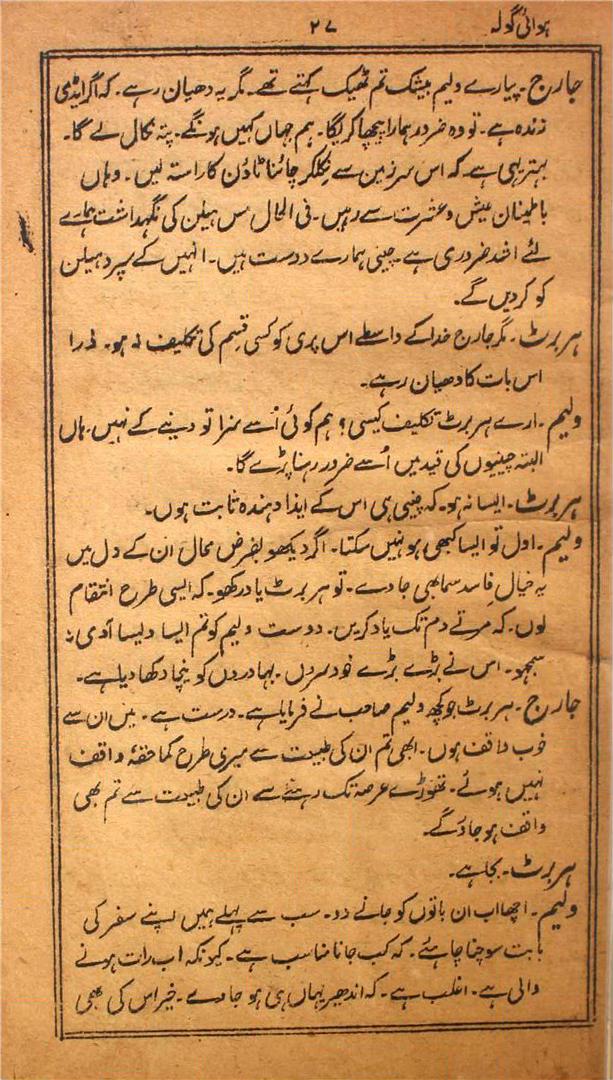 ہوائی گولہ
۲۷
جارج۔ پیارے ولیم بیشک تم ٹھیک کہتے تھے۔ مگر یہ دھیان رہے۔ کہ اگر ایڈی
زندہ ہے۔ تو وہ ضرور ہمارا پیچھا کریگا۔ ہم جہاں کہیں ہونگے۔ پتہ نکال لے گا۔
بہتر یہی ہے کہ اس سرزمین سے نکلکر چائنا ٹاؤن کا راستہ لیں۔ وہاں
باطمینان عیش و عشرت سے رہیں۔ فی الحال مس ہیلن کی نگہداشت ہمارے
لئے اشد ضروری ہے۔ چینی ہمارے دوست ہیں۔ انہیں کے سپرد ہیلن
کو کر دیں گے۔
ہربرٹ۔ مگر جارج خدا کے واسطے اس پری کو کسی قسم کی تکلیف نہ ہو۔ ذرا
اس بات کا دھیان رہے۔
ولیم۔ ارے ہربرٹ تکلیف کیسی؟ ہم کوئی اُسے سزا تو دینے کے نہیں۔ ہاں
البتہ چینیوں کی قید میں اُسے ضرور رہنا پڑے گا۔
ہربرٹ۔ ایسا نہ ہو۔ کہ چینی ہی اس کے ایذا دہندہ ثابت ہوں۔
ولیم۔ اول تو ایسا کبھی ہو نہیں سکتا۔ اگر دیکھو بفرض محال ان کے دل میں
یہ خیال فاسد سما بھی جاوے۔ تو ہربرٹ یاد رکھو۔ کہ ایسی طرح انتقام
لوں۔ کہ مرتے دم تک یاد کریں۔ دوست ولیم کو تم ایسا ویسا آدمی نہ
سمجھو۔ اس نے بڑے بڑے خودسروں۔ بہادروں کو نیچا دکھا دیا ہے۔
جارج۔ ہربرٹ جو کچھ ولیم صاحب نے فرمایا ہے۔ درست ہے۔ میں ان سے
خوب واقف ہوں۔ ابھی تم ان کی طبیعت سے میری طرح کماحقہٗ واقف
نہیں ہوئے۔ تھوڑے عرصہ تک رہنے سے ان کی طبیعت سے تم بھی
واقف ہو جاؤگے۔
ہربرٹ۔ بجا ہے۔
ولیم۔ اچھا اب ان باتوں کو جانے دو۔ سب سے پہلے ہمیں اپنے سفر کی
بابت سوچنا چاہئے۔ کہ کب جانا مناسب ہے۔ کیونکہ اب رات ہونے
والی ہے۔ اغلب ہے۔ کہ اندھیر یہاں ہی ہو جاوے۔ خیر اس کی بھی